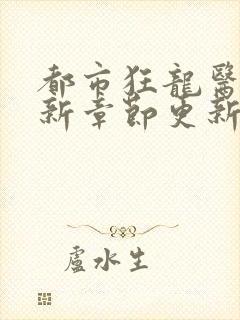 都市狂龍醫
新章節更新
盧水生